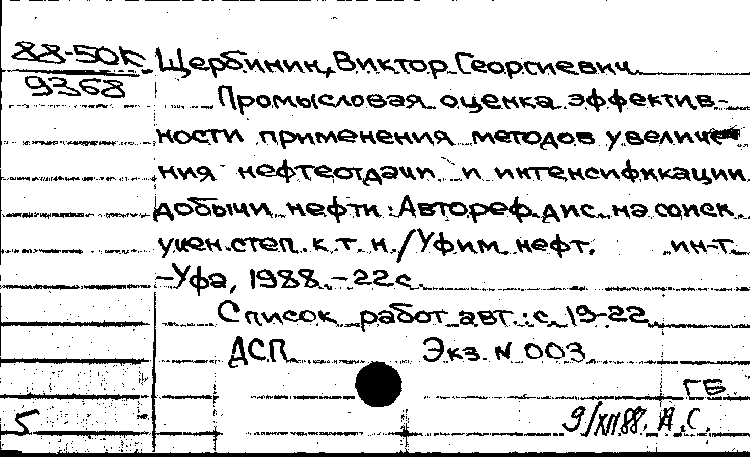 88-50К Щербинин, Виктор Георгиевич
9368
Промысловая оценка эффектив-
ности применения методов увеличе-
ния нефтеотдачи и интенсификации
добычи нефти: Автореф. дис. на соиск.
учен. степ. к. т. н. / Уфим. нефт. ин-т.
-Уфа, 1988. - 22 с.
Список работ авт.: с. 19-22
ДСП Экз. N 003
ГБ
5 9/XII 88. А. С.